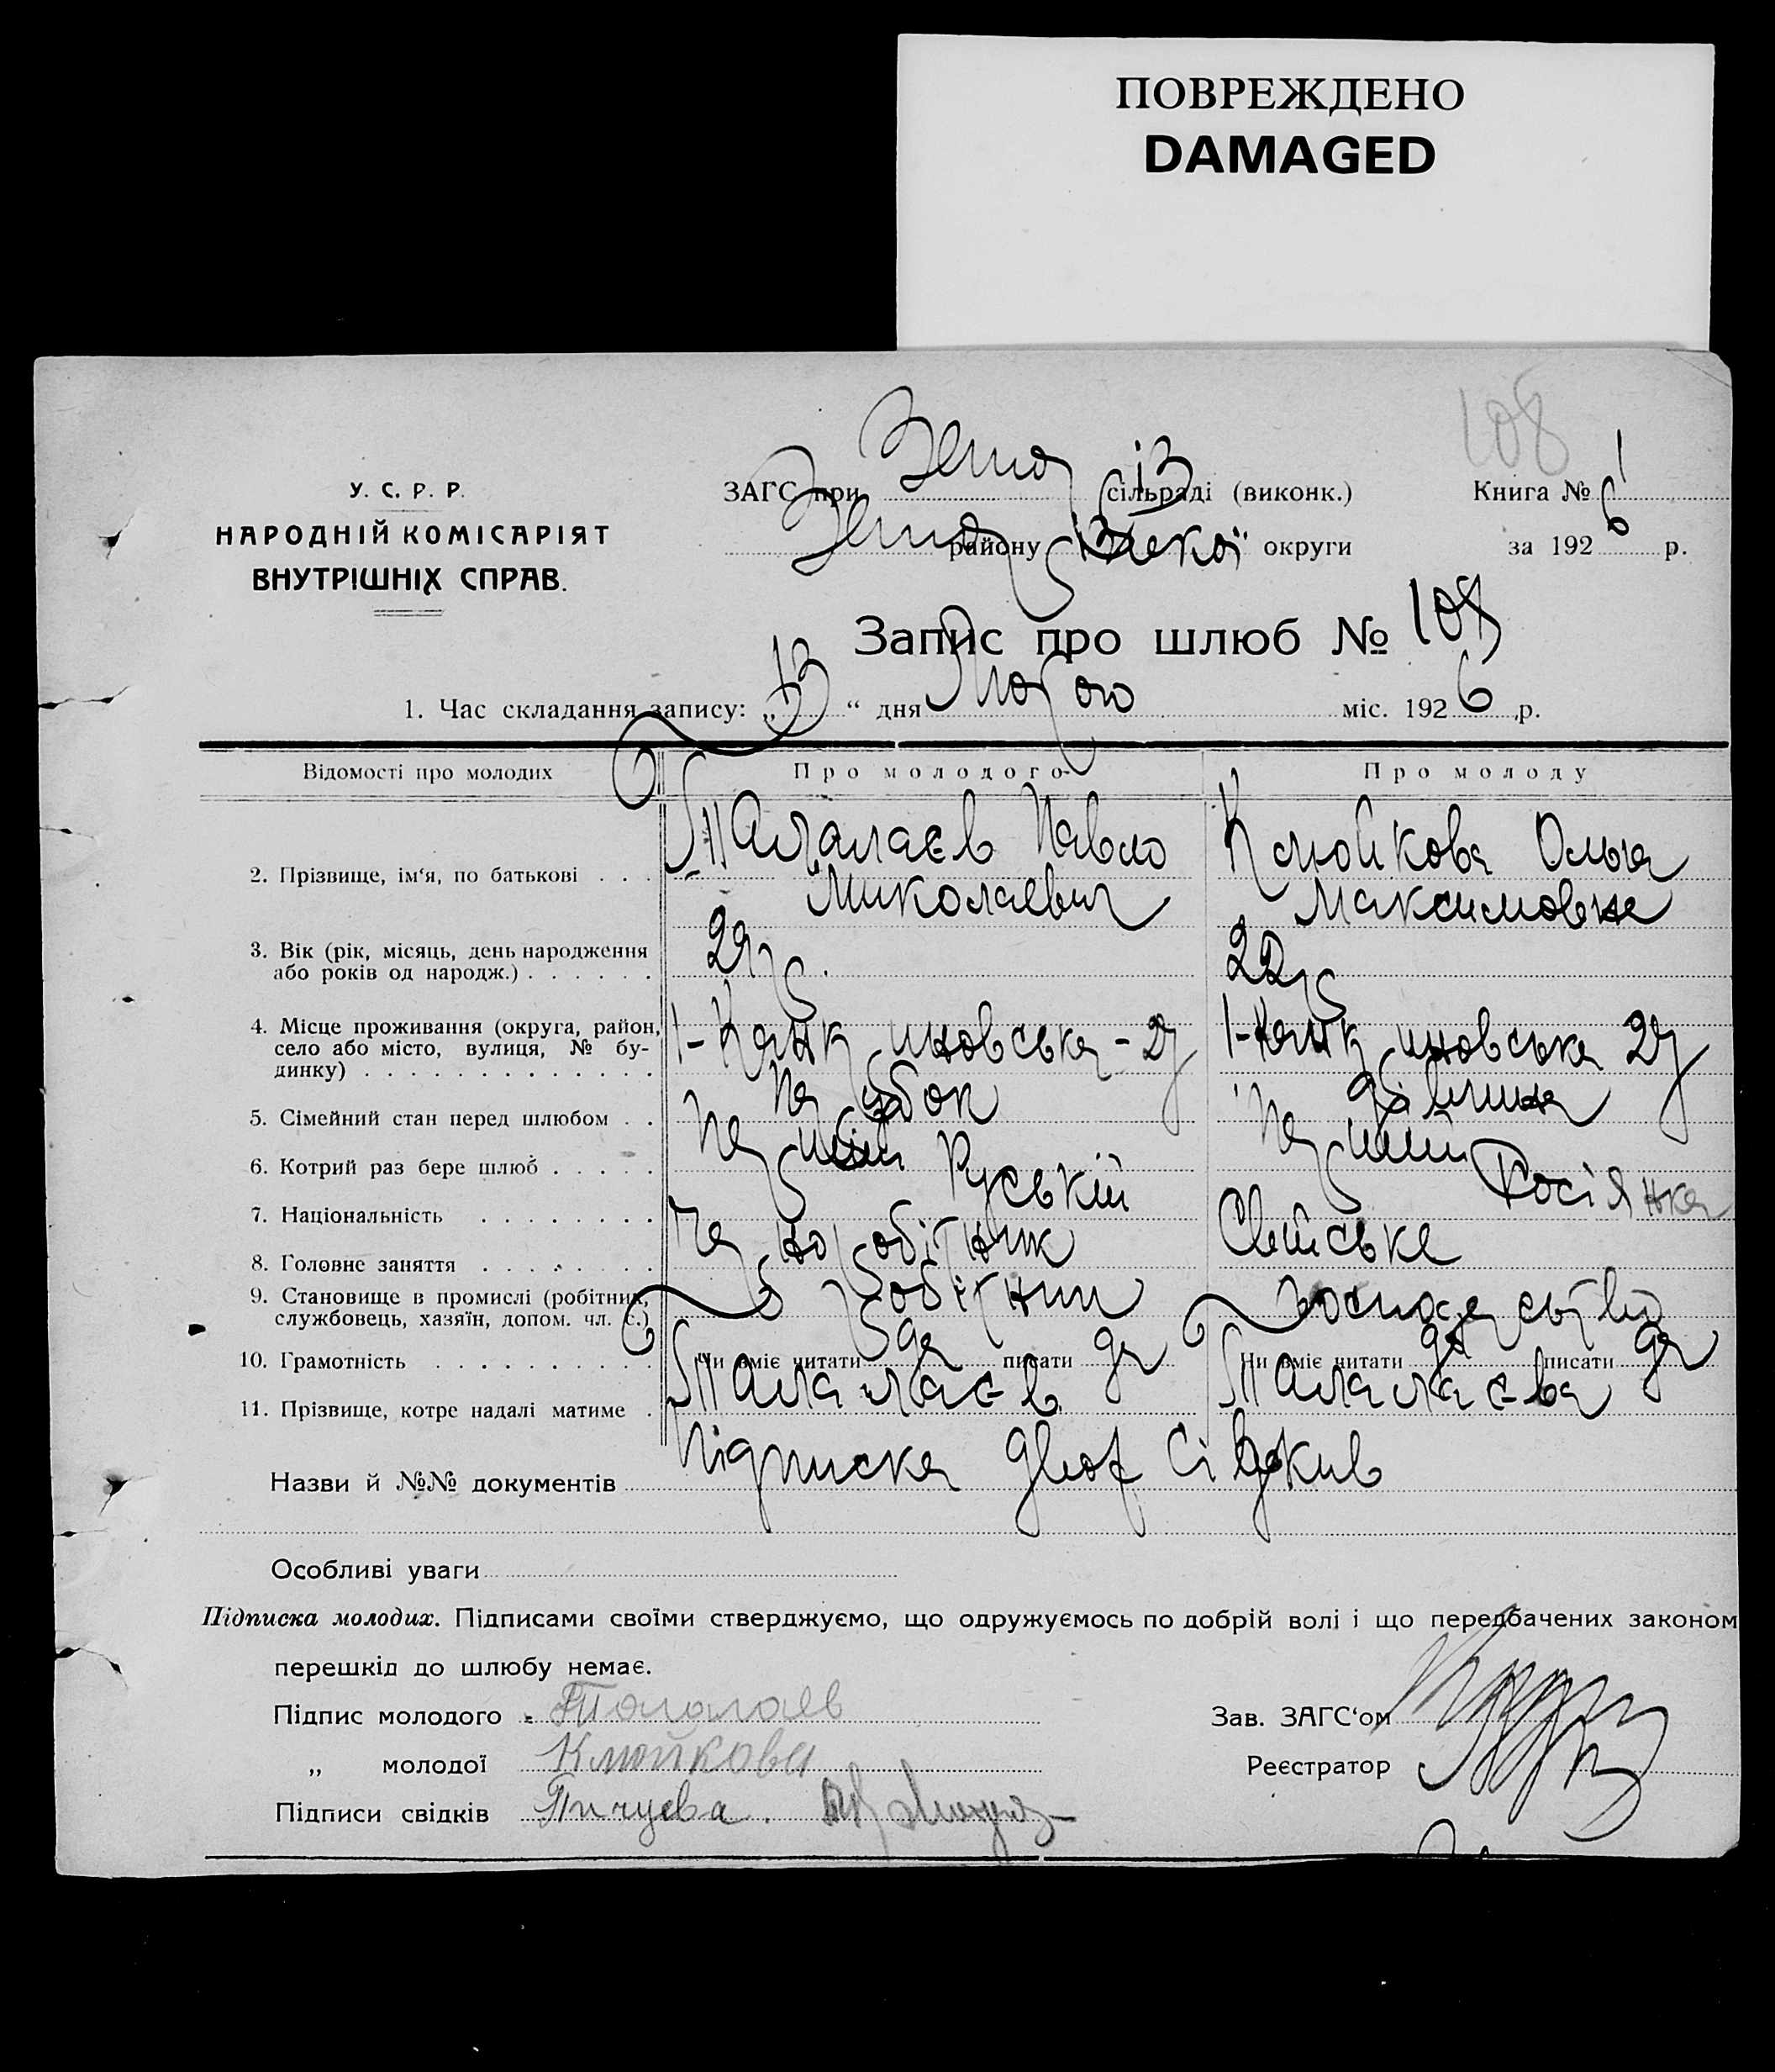 ПОВРЕЖДЕНО
DAMAGED
108
У. С. Р. Р.
НАРОДНІЙ КОМІСАРІЯТ
ВНУТРІШНІХ СПРАВ.
ЗАГС при сільраді (виконк.)
Книга № 1
району округи
за 1926 р.
Запис про шлюб № 108
1. Час складання запису: „13“ дня Лютого міс. 1926 р.
Відомості про молодих Про молодого Про молоду
2. Прізвище, ім‘я, по батькові . . . Талалаєв Павло Миколаевич Клюйкова Ольга Максимовна
3. Вік (рік, місяць, день народження
або років од народж.) . . . . . . 22р.
4. Місце проживання (округа, район,
село або місто, вулиця, № бу-
динку) . . . . . . . . . . . . .
5. Сімейний стан перед шлюбом . . Парубок Дівчина
6. Котрий раз бере шлюб . . . . . Перший Перший
7. Національність . . . . . . . . Руський Росіянка
8. Головне заняття . . . . . . . Чорноробітник
9. Становище в промислі (робітник,
службовець, хазяїн, допом. чл. с.) робітник
10. Грамотність . . . . . . . . . . Чи вміє читати да писати да Чи вміє читати да писати да
11. Прізвище, котре надалі матиме . Талалаєв Талалаєва
Назви й №№ документів Підписка двох Свідків
Особливі уваги
Підписка молодих. Підписами своїми стверджуємо, що одружуємось по добрій волі і що передбачених законом
перешкід до шлюбу немає.
Підпис молодого Талалаев
Зав. ЗАГС‘ом
„ молодої Клюйкова
Реєстратор
Підписи свідків Пичуева